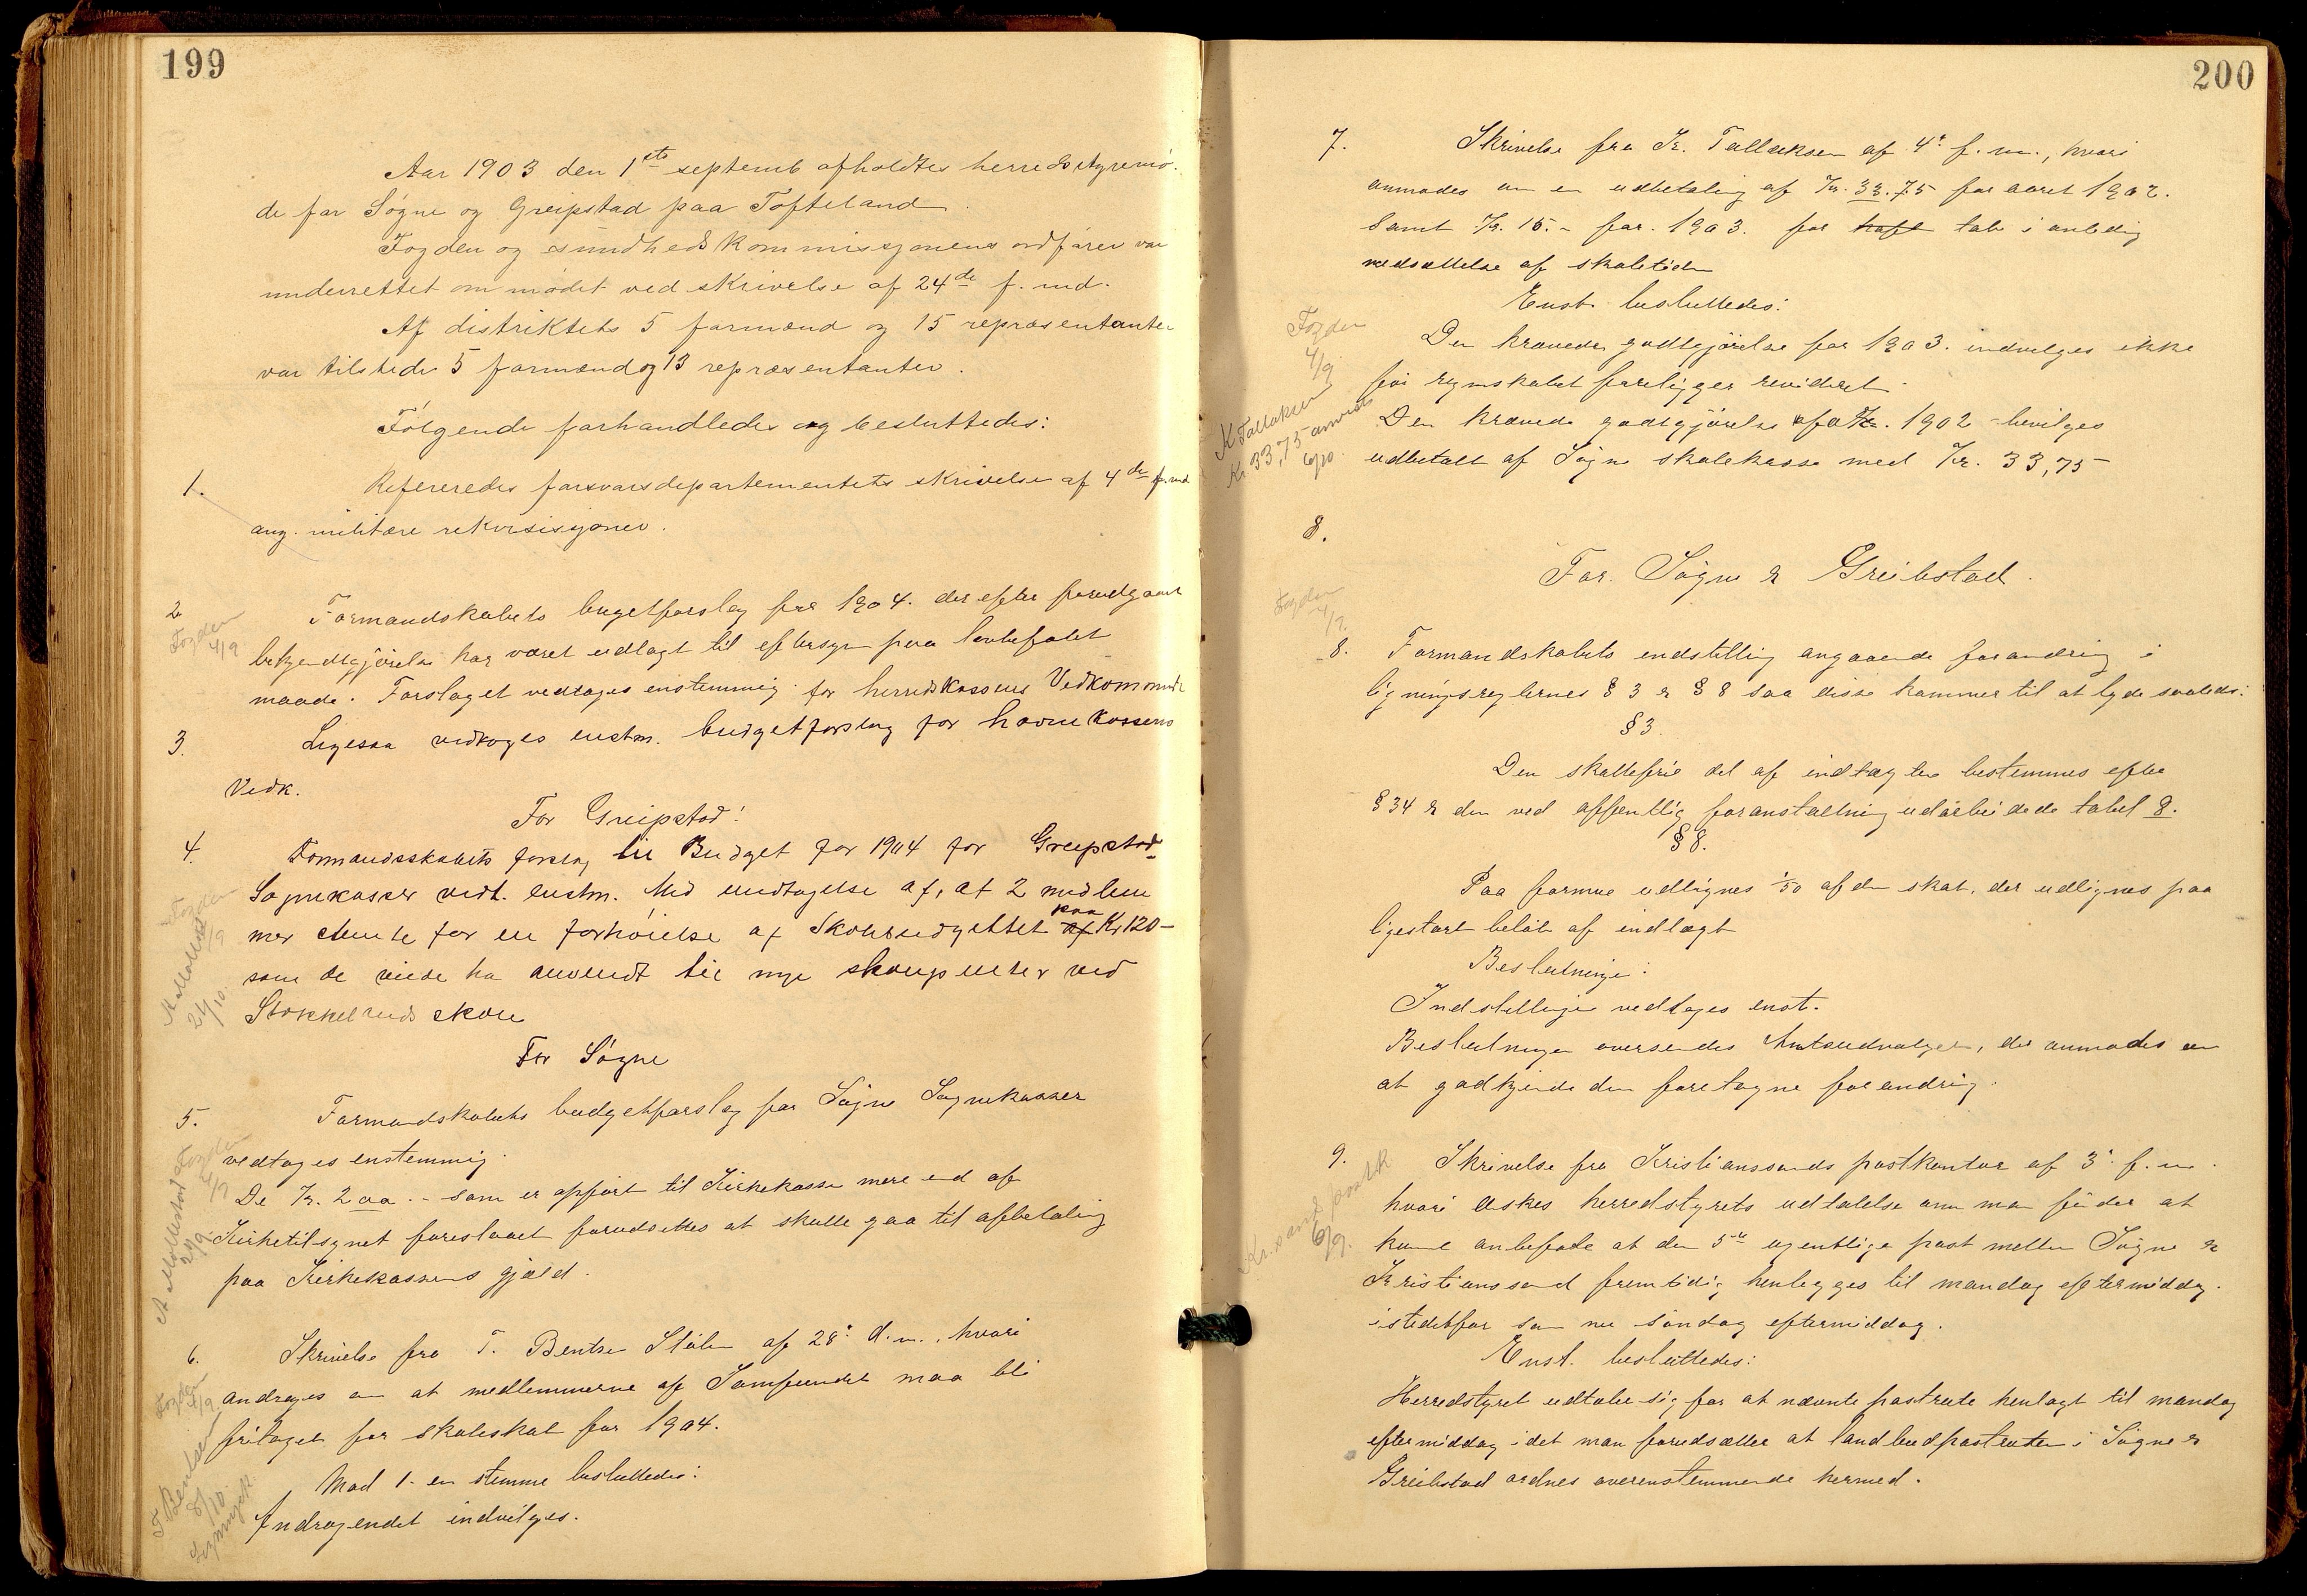 199
Aar 1903 den 1ste septemb afholdtes herredsstyremø-
de for Søgne og Greipstad paa Tofteland.
Fogden og sundhedskommissjonens ordfører var
underrettet om mødet ved skrivelse af 24de f. md.
Af distriktets 5 formænd og 15 repræsentanter
var tilstede 5 formænd og 13 repræsentanter.
Følgende forhandledes og besluttedes:
1. Refereredes forsvarsdepartementets skrivelse af 4de f. md
ang. militære rekvisisjoner.
2 Formandskabets bugetforslag for 1904. der efter forudgaaet
Fogden 4/9
bekjendtgjørelse har været udlagt til eftersyn paa lovbefalet
maade. Forslaget vedtages enstemmig for herredskassens Vedkommende
3. Ligesaa vedtoges enstm. budgetforslag for havnekassens
Vedk.
For Greipstad:
4. Formandsskabets forslag til Budget for 1904 for Greipstad
Sognekasser vedt. enstm. Med undtagelse af, at 2 medlem
mer stemte for en forhøielse af Skolebudgettet af paa Kr 120-
som de vilde ha anvendt til nye skolepulter ved
Stokkelands skole
Fogden
21/10.
For Søgne
5. Formandskabets budgetforslag for Søgne Sognekasser
vedtages enstemmig.
Fogden
De Kr. 200.- som er opført til Kirkekassen mere end af
Kirketilsynet foreslaaet forudsættes at skulle gaa til afbetaling
paa Kirkekassens gjæld.
6. Skrivelse fra T. Bentsen Stølen af 28' d.m., hvori
andrages om at medlemmerne af Samfundet maa bli
fritaget for skoleskat for 1904.
Fogden 4/9
Mod 1- en stemme besluttedes:
Andragendet indvilges.
T Bentsen
8/10.
200
7. Skrivelse fra K. Tallaksen af 4' f.m., hvori
anmodes om en udbetaling af Kr. 33.75 for aaret 1902.
Samt Kr. 15.- for. 1903. for haft tab i anledning
nedsættelse af skoletiden
Enst. besluttedes:
Fogden
4/9
Den krævede godtgjørelse for 1903. indvilges ikke
før regnskabet foreligger revideret.
Den krævede godtgjørelse for 1902 bevilges
udbetalt af Søgne skolekasse med Kr. 33,75
K Tallaksen
Kr 33,75 anvist
8.
For. Søgne & Greibstad.
Fogden
4/9.
8. Formandskabets indstilling angaaende forandring i
ligningsreglernes § 3 & § 8 saa disse kommer til at lyde saaledes:
§ 3.
Den skattefrie del af indtægten bestemmes efter
§ 34 & den ved offentlig foranstaltning udarbeidede tabel 8.
§ 8.
Paa formue udlignes 1/50 af den skat, der udlignes paa
ligestort beløb af indtægt
Beslutning:
Indstillingen vedtages enst.
Beslutningen oversendes Amtsudvalget, der anmodes om
at godkjende den foretagne forandring.
9. Skrivelse fra Kristianssands postkontor af 3' f.m.
hvori æskes herredstyrets udtalelse om man finder at
kunne anbefale at den 5te ugentlige post mellem Søgne &
Kristianssand fremtidig henlægges til mandag eftermiddag.
istedetfor som nu søndag eftermiddag.
Kr.sands postk
6/9.
Enst. besluttedes:
Herredstyret udtaler sig for at nævnte postrute henlagt til mandag
eftermiddag idet man forudsætter at landbudpostruten i Søgne &
Greibstad ordnes overensstemmende hermed.